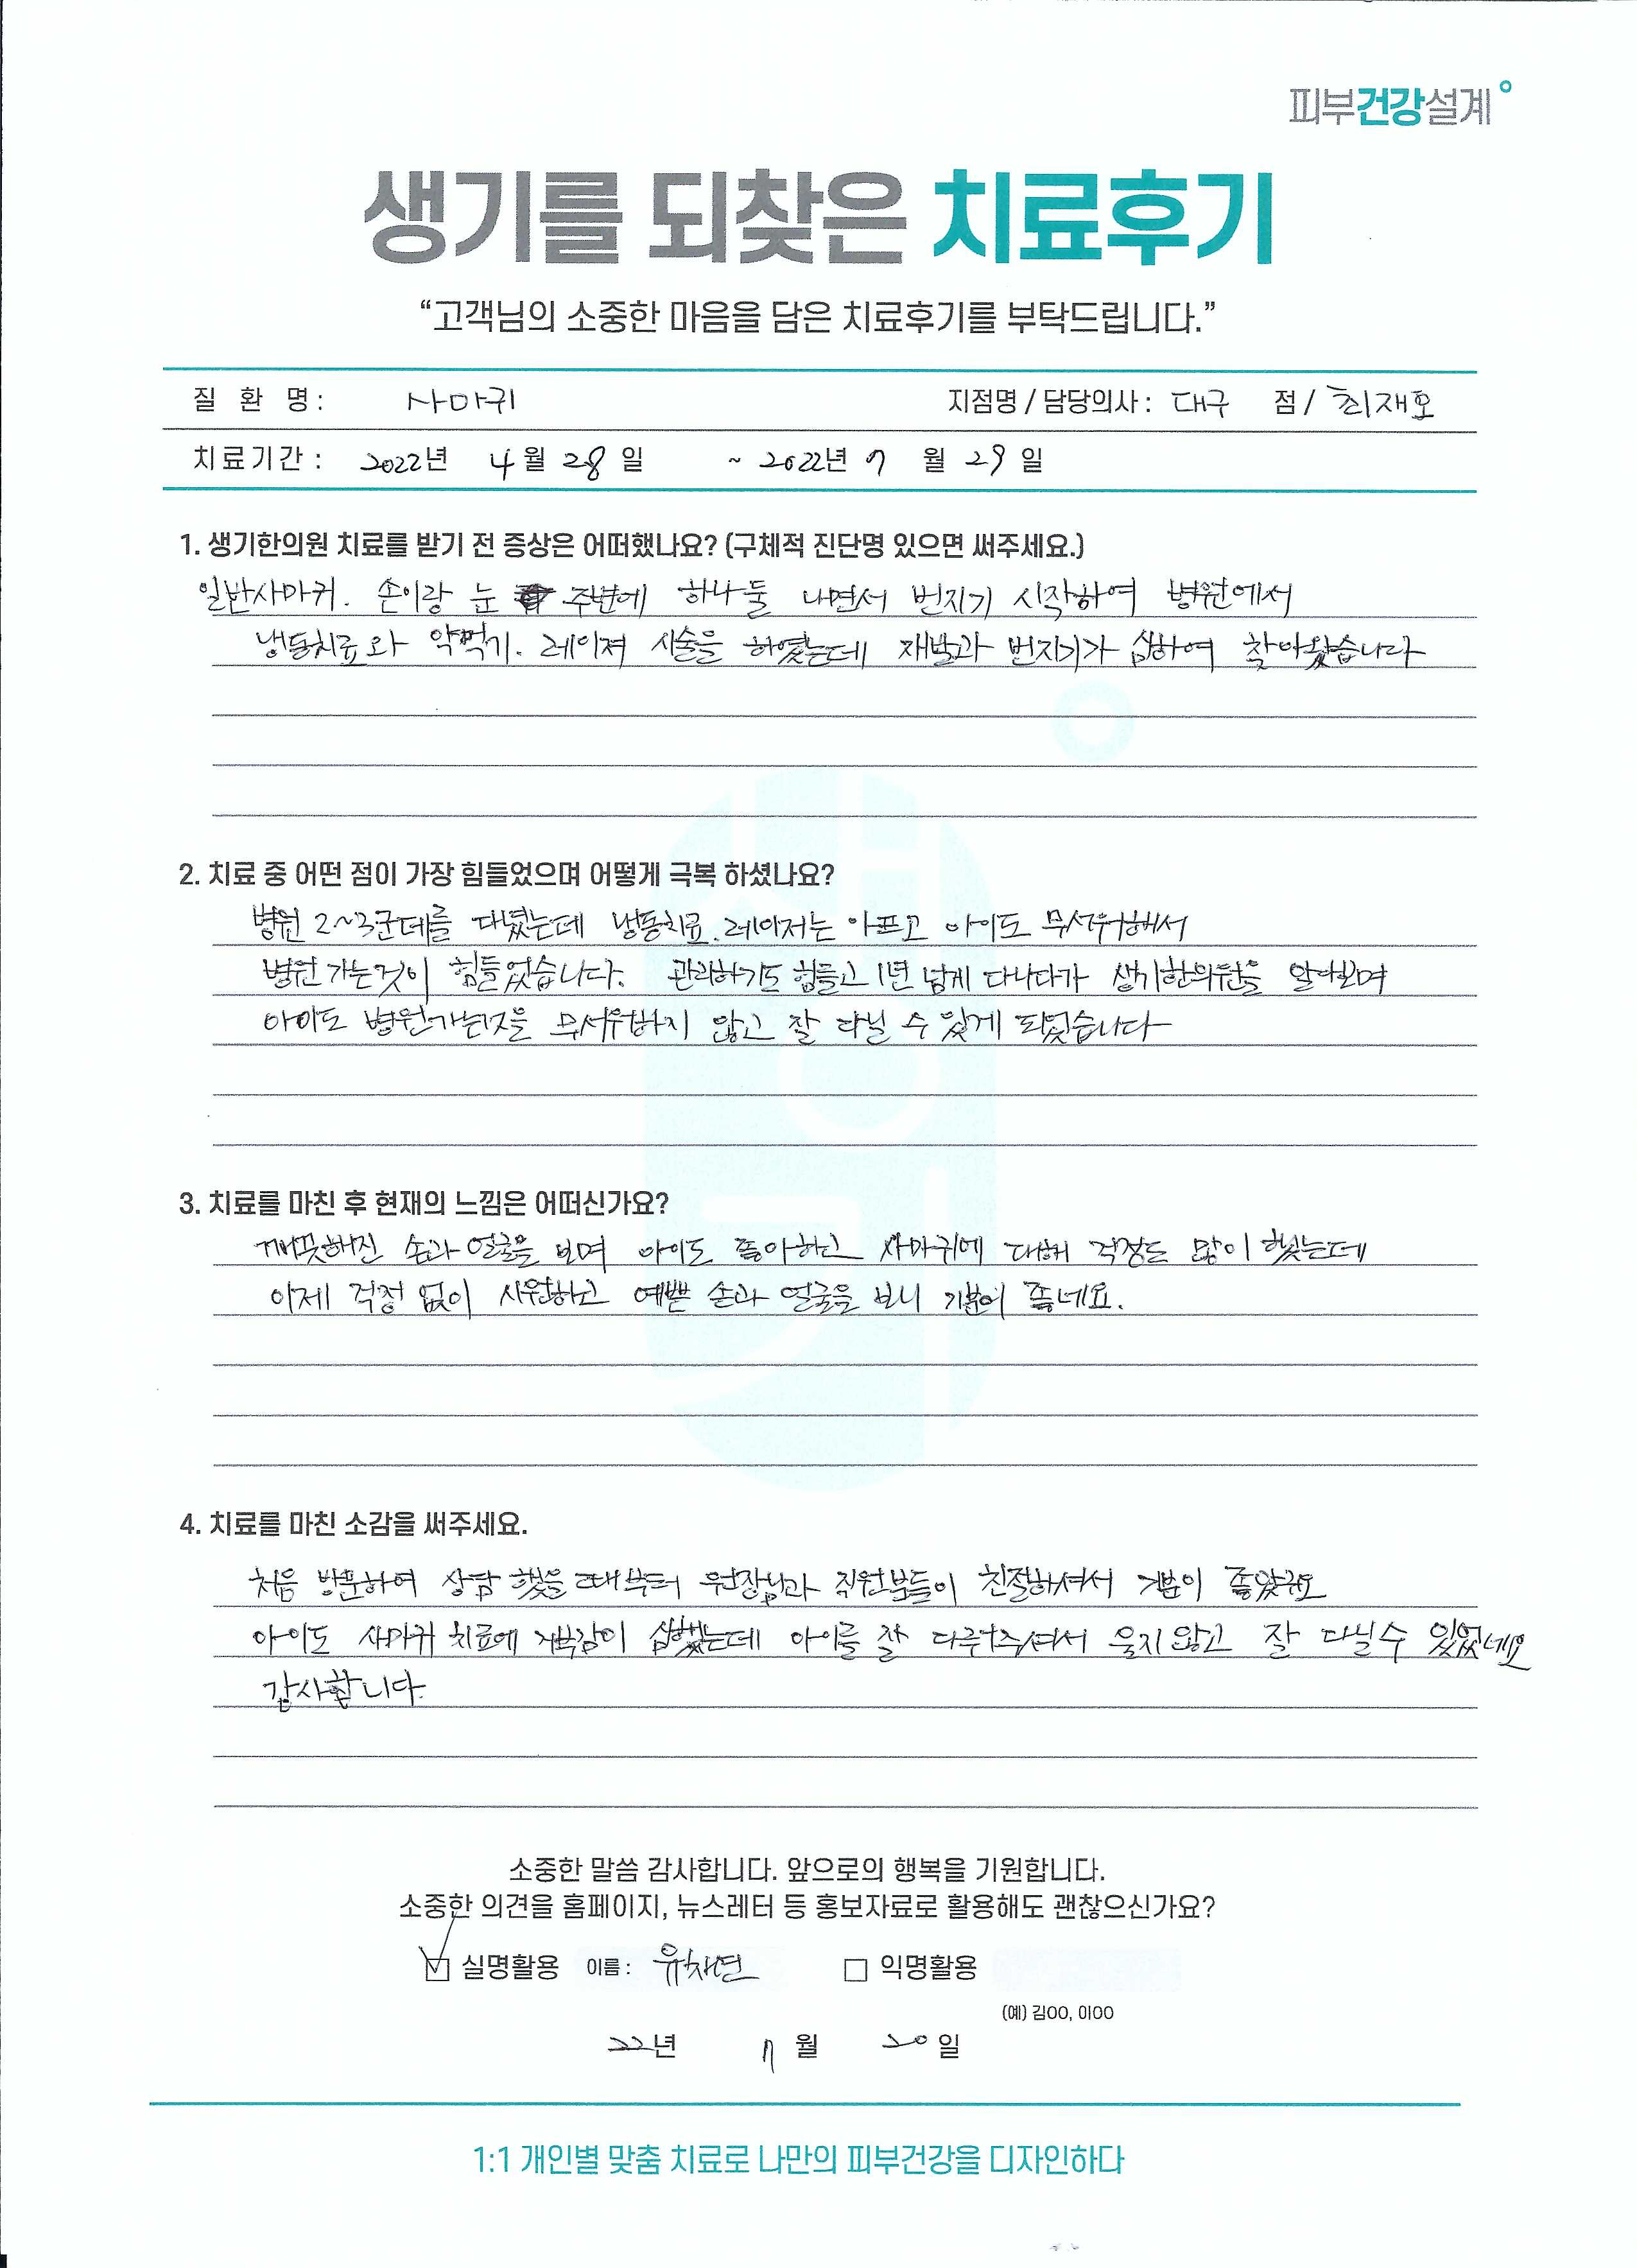 피부건강설계
생기를 되찾은 치료후기
“고객님의 소중한 마음을 담은 치료후기를 부탁드립니다.”
질 환 명 : 사마귀 지점명 / 담당의사 : 대구 점 / 최재호
치료기간 : 2022년 4월 28일 ~ 2022년 7월 29일
1. 생기한의원 치료를 받기 전 증상은 어떠했나요? (구체적 진단명 있으면 써주세요.)
일반사마귀. 손이랑 눈 주변에 하나둘 나면서 번지기 시작하여 병원에서
냉동치료와 약먹기. 레이져 시술을 하였는데 재발과 번지기가 심하여 찾아왔습니다
2. 치료 중 어떤 점이 가장 힘들었으며 어떻게 극복 하셨나요?
병원 2~3군데를 다녔는데 냉동치료. 레이저는 아프고 아이도 무서워해서
병원 가는것이 힘들었습니다. 관리하기도 힘들고 1년 넘게 다니다가 생기한의원을 알아보며
아이도 병원가는것을 무서워하지 않고 잘 다닐 수 있게 되었습니다
3. 치료를 마친 후 현재의 느낌은 어떠신가요?
깨끗해진 손과 얼굴을 보며 아이도 좋아하고 사마귀에 대해 걱정도 많이 했는데
이제 걱정 없이 시원하고 예쁜 손과 얼굴을 보니 기분이 좋네요.
4. 치료를 마친 소감을 써주세요.
처음 방문하여 상담 했을 때부터 원장님과 직원분들이 친절하셔서 기분이 좋았어요
아이도 사마귀 치료에 거부감이 심했는데 아이를 잘 다루어주셔서 울지 않고 잘 다닐수 있었네요
감사합니다.
소중한 말씀 감사합니다. 앞으로의 행복을 기원합니다.
소중한 의견을 홈페이지, 뉴스레터 등 홍보자료로 활용해도 괜찮으신가요?
실명활용 이름 : 유채연 익명활용
(예) 김OO, 이OO
22년 7월 20일
1:1 개인별 맞춤 치료로 나만의 피부건강을 디자인하다
생기